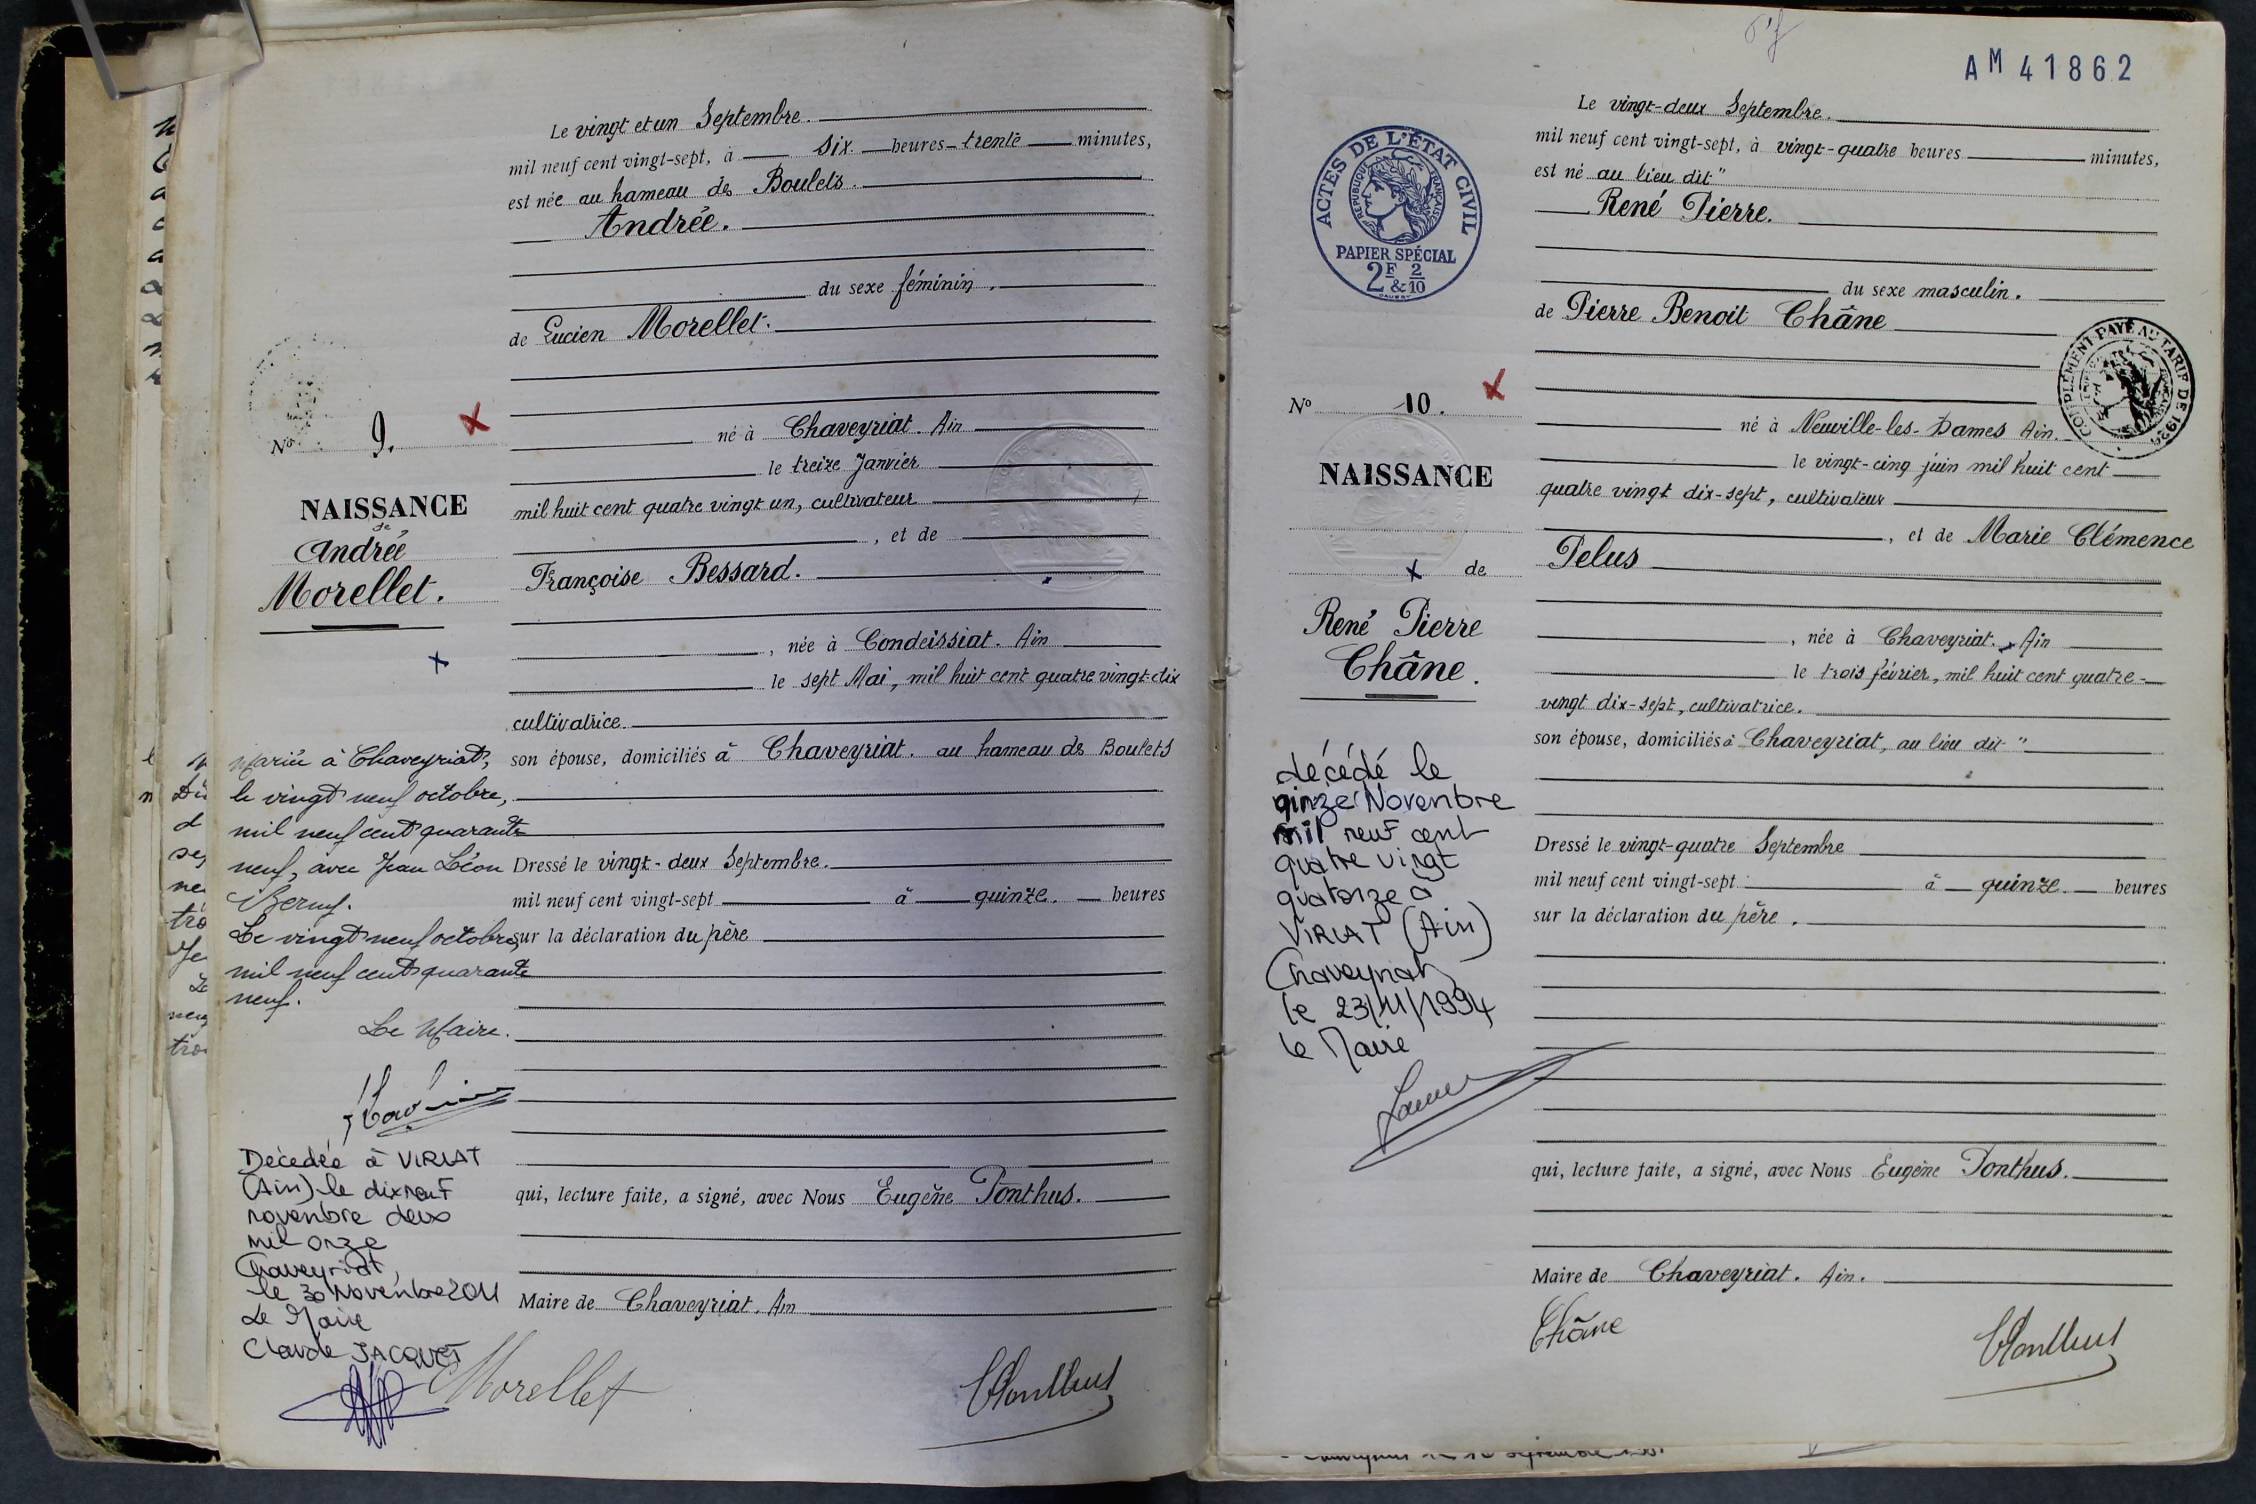 Le vingt et un Septembre.
mil neuf cent vingt-sept, à six heures trente minutes,
est née au hameau des Boulets.
Andrée.
du sexe féminin.
de Lucien Morellet.
né à Chaveyriat. Ain
le treize Janvier
mil huit cent quatre vingt un, cultivateur
, et de
Françoise Bessard.
, née à Condeissiat. Ain
le sept Mai, mil huit cent quatre vingt-dix
cultivatrice.
son épouse, domiciliés à Chaveyriat. au hameau des Boulets
Dressé le vingt-deux Septembre.
mil neuf cent vingt-sept à quinze. heures
sur la déclaration du père
qui, lecture faite, a signé, avec Nous Eugène Ponthus.
Maire de Chaveyriat. Ain
Morellet
EPonthus
No 9.
NAISSANCE
de
Andrée
Morellet.
Mariée à Chaveyriat,
le vingt neuf octobre,
mil neuf cent quarante
neuf, avec Jean Léon
Le vingt neuf octobre,
mil neuf cent quarante
neuf.
Le Maire.
Décédée à VIRIAT
(Ain) le dix neuf
novembre deux
mil onze
Chaveyriat,
le 30 Novembre 2011
Le Maire
Claude JACQUET
AM 41862
Le vingt-deux Septembre.
mil neuf cent vingt-sept, à vingt-quatre heures minutes,
est né au lieu dit "
René Pierre.
du sexe masculin.
de Pierre Benoit Châne
né à Neuville-les-Dames Ain.
le vingt-cinq juin mil huit cent
quatre vingt dix-sept, cultivateur
, et de Marie Clémence
Pelus
, née à Chaveyriat. Ain
le trois février, mil huit cent quatre-
vingt dix-sept, cultivatrice.
son épouse, domiciliés à Chaveyriat, au lieu dit "
Dressé le vingt-quatre Septembre
mil neuf cent vingt-sept à quinze. heures
sur la déclaration du père.
qui, lecture faite, a signé, avec Nous Eugène Ponthus.
Maire de Chaveyriat. Ain.
Châne
EPonthus
ACTES DE L'ÉTAT CIVIL
RÉPUBLIQUE FRANÇAISE
PAPIER SPÉCIAL
2F & 2/10
COMPLÉMENT PAYÉ AU TARIF DE 1926
No 10.
NAISSANCE
de
René Pierre
Châne.
décédé le
qinze Novembre
mil neuf cent
quatre vingt
quatorze à
VIRIAT (Ain)
Chaveyriat
le 23/11/1994
le Maire